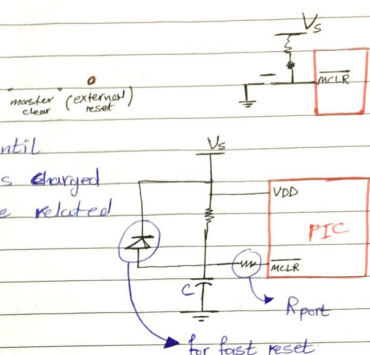 Vs
MCLR
"master" (external)
clear reset
until
s charged
e related
Vs
VDD
PIC
MCLR
C
Rport
for fast reset